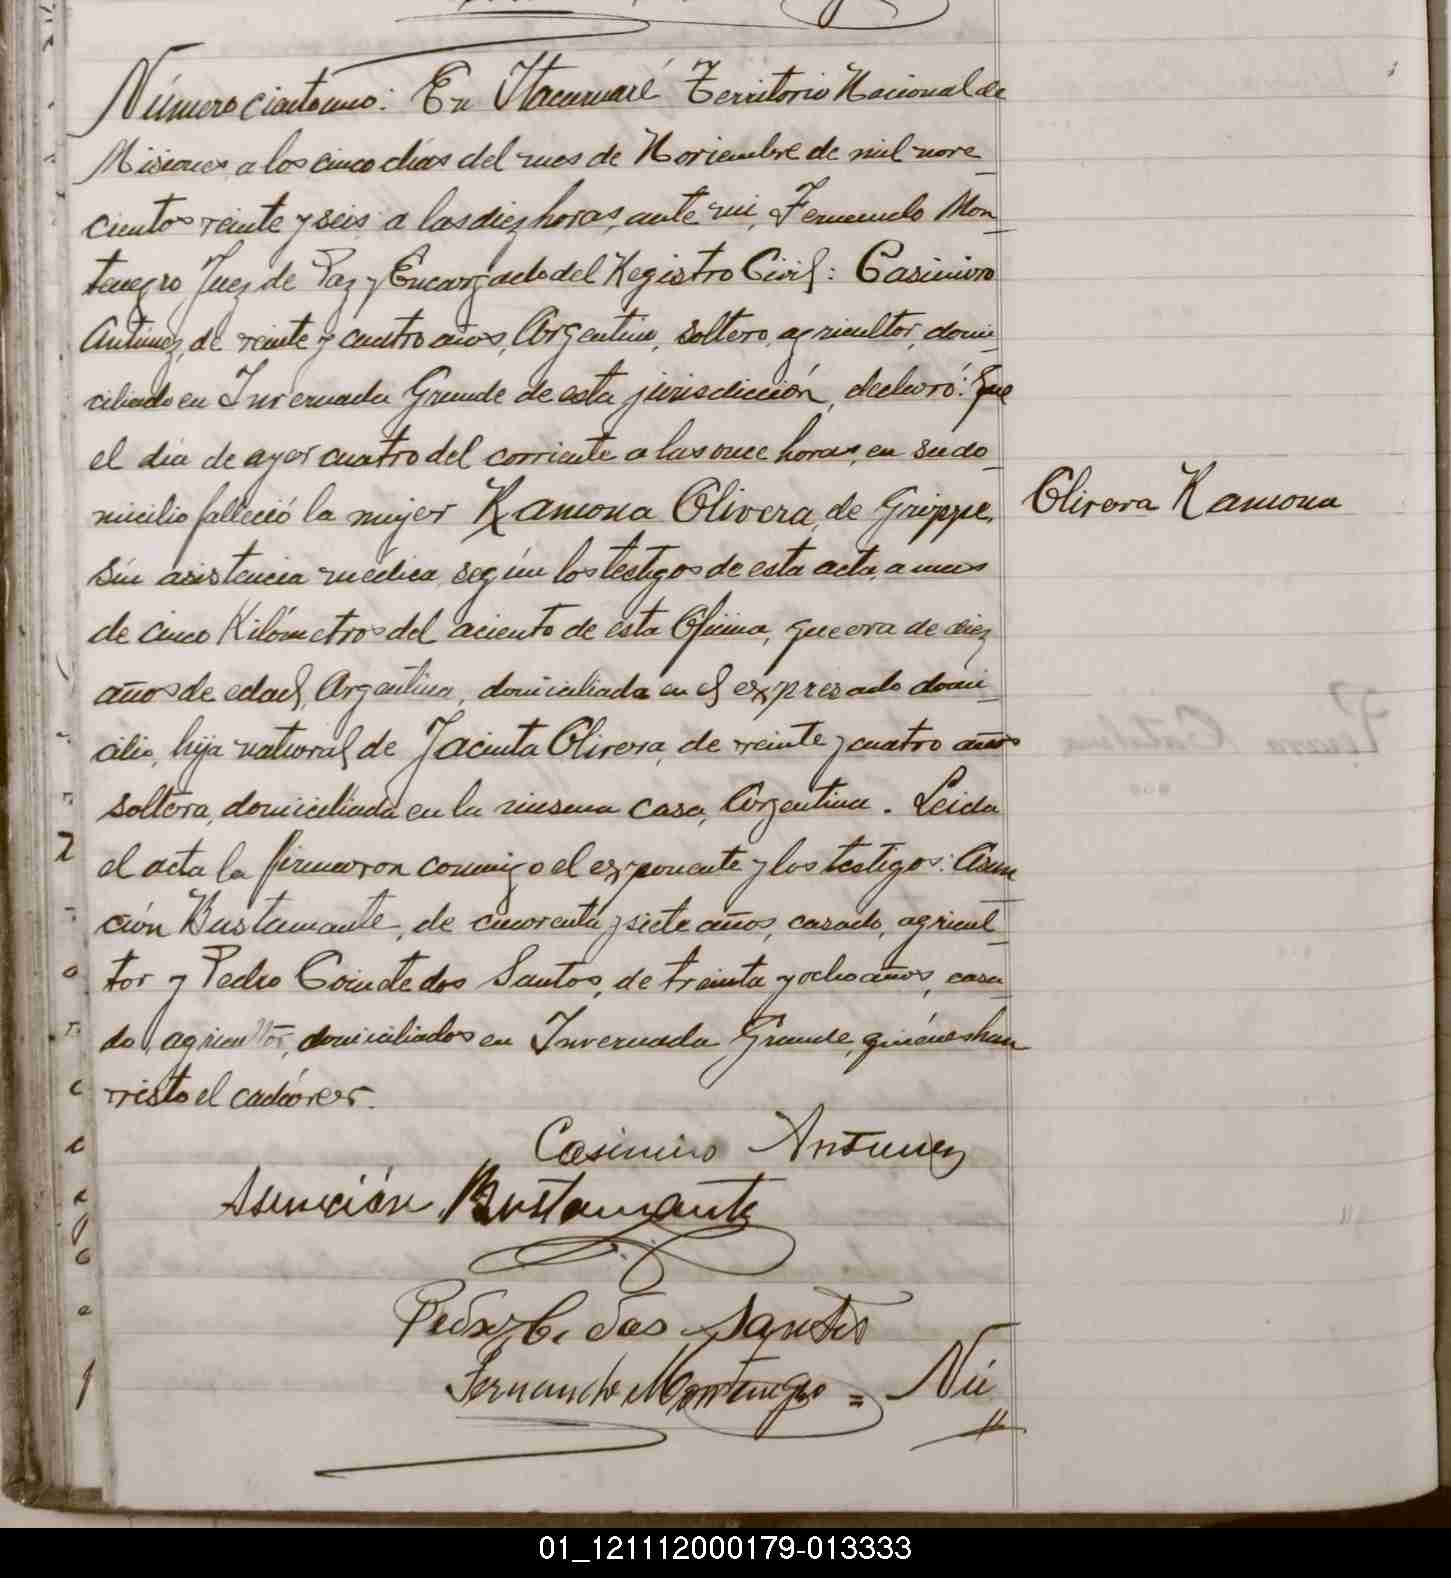 Número ciento uno: En Itacaruaré Territorio Nacional de
Misiones a los cinco días del mes de Noviembre de mil nove-
cientos veinte y seis a las diez horas, ante mi, Fernando Mon-
tenegro Juez de Paz y Encargado del Registro Civil: Casimiro
Antunez, de veinte y cuatro años, Argentino, soltero, agricultor, domi-
ciliado en Invernada Grande de esta jurisdicción, declaró: Que
el día de ayer cuatro del corriente a las once horas, en su do-
micilio falleció la mujer Ramona Olivera, de Grippe,
Olivera Ramona
sin asistencia médica, según los testigos de esta acta, a mas
de cinco Kilómetros del aciento de esta Oficina, que era de diez
años de edad, Argentina, domiciliada en el expresado domi-
cilio, hija natural de Jacinta Olivera, de veinte y cuatro años
soltera, domiciliada en la misma casa, Argentina. Leida
el acta la firmaron conmigo el exponente y los testigos: Asun
ción Bustamante, de cuarenta y siete años, casado, agricul-
tor y Pedro dos Santos, de treinta y ocho años, casa-
do, agricultor, domiciliados en Invernada Grande, quiénes han
visto el cadáver.
Casimiro Antunez
Asunción Bustamante
Pedro C. dos Santos
Fernando Montenegro = Nú
01_121112000179-013333